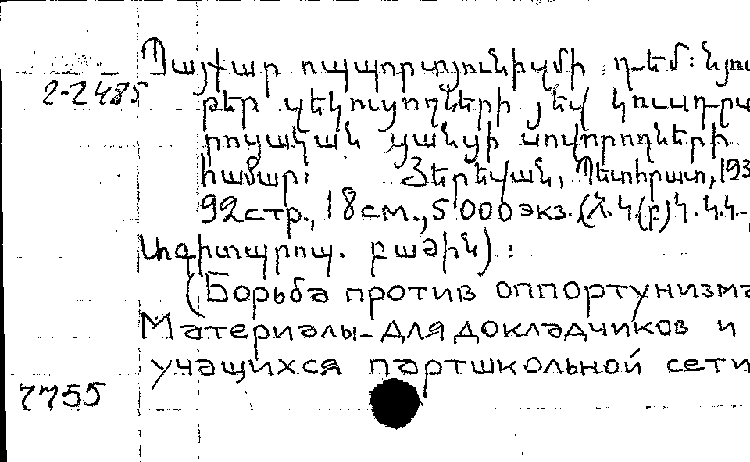 Պայքար ոպպորտյունիզմի դեմ: Նյու
2-2485 թեր զեկուցողների յեվ կուսդրա
րոցական ցանցի սովորողների
համար: Յերեվան, Պետհրատ, 193
92стр., 18см., 5000экз. (Հ.Կ(բ)Կ. Կ.Կ.-
Ագիտպրոպ. բաժին):
(Борьба против оппортунизма
Материалы-для докладчиков и
учащихся партшкольной сети
7755